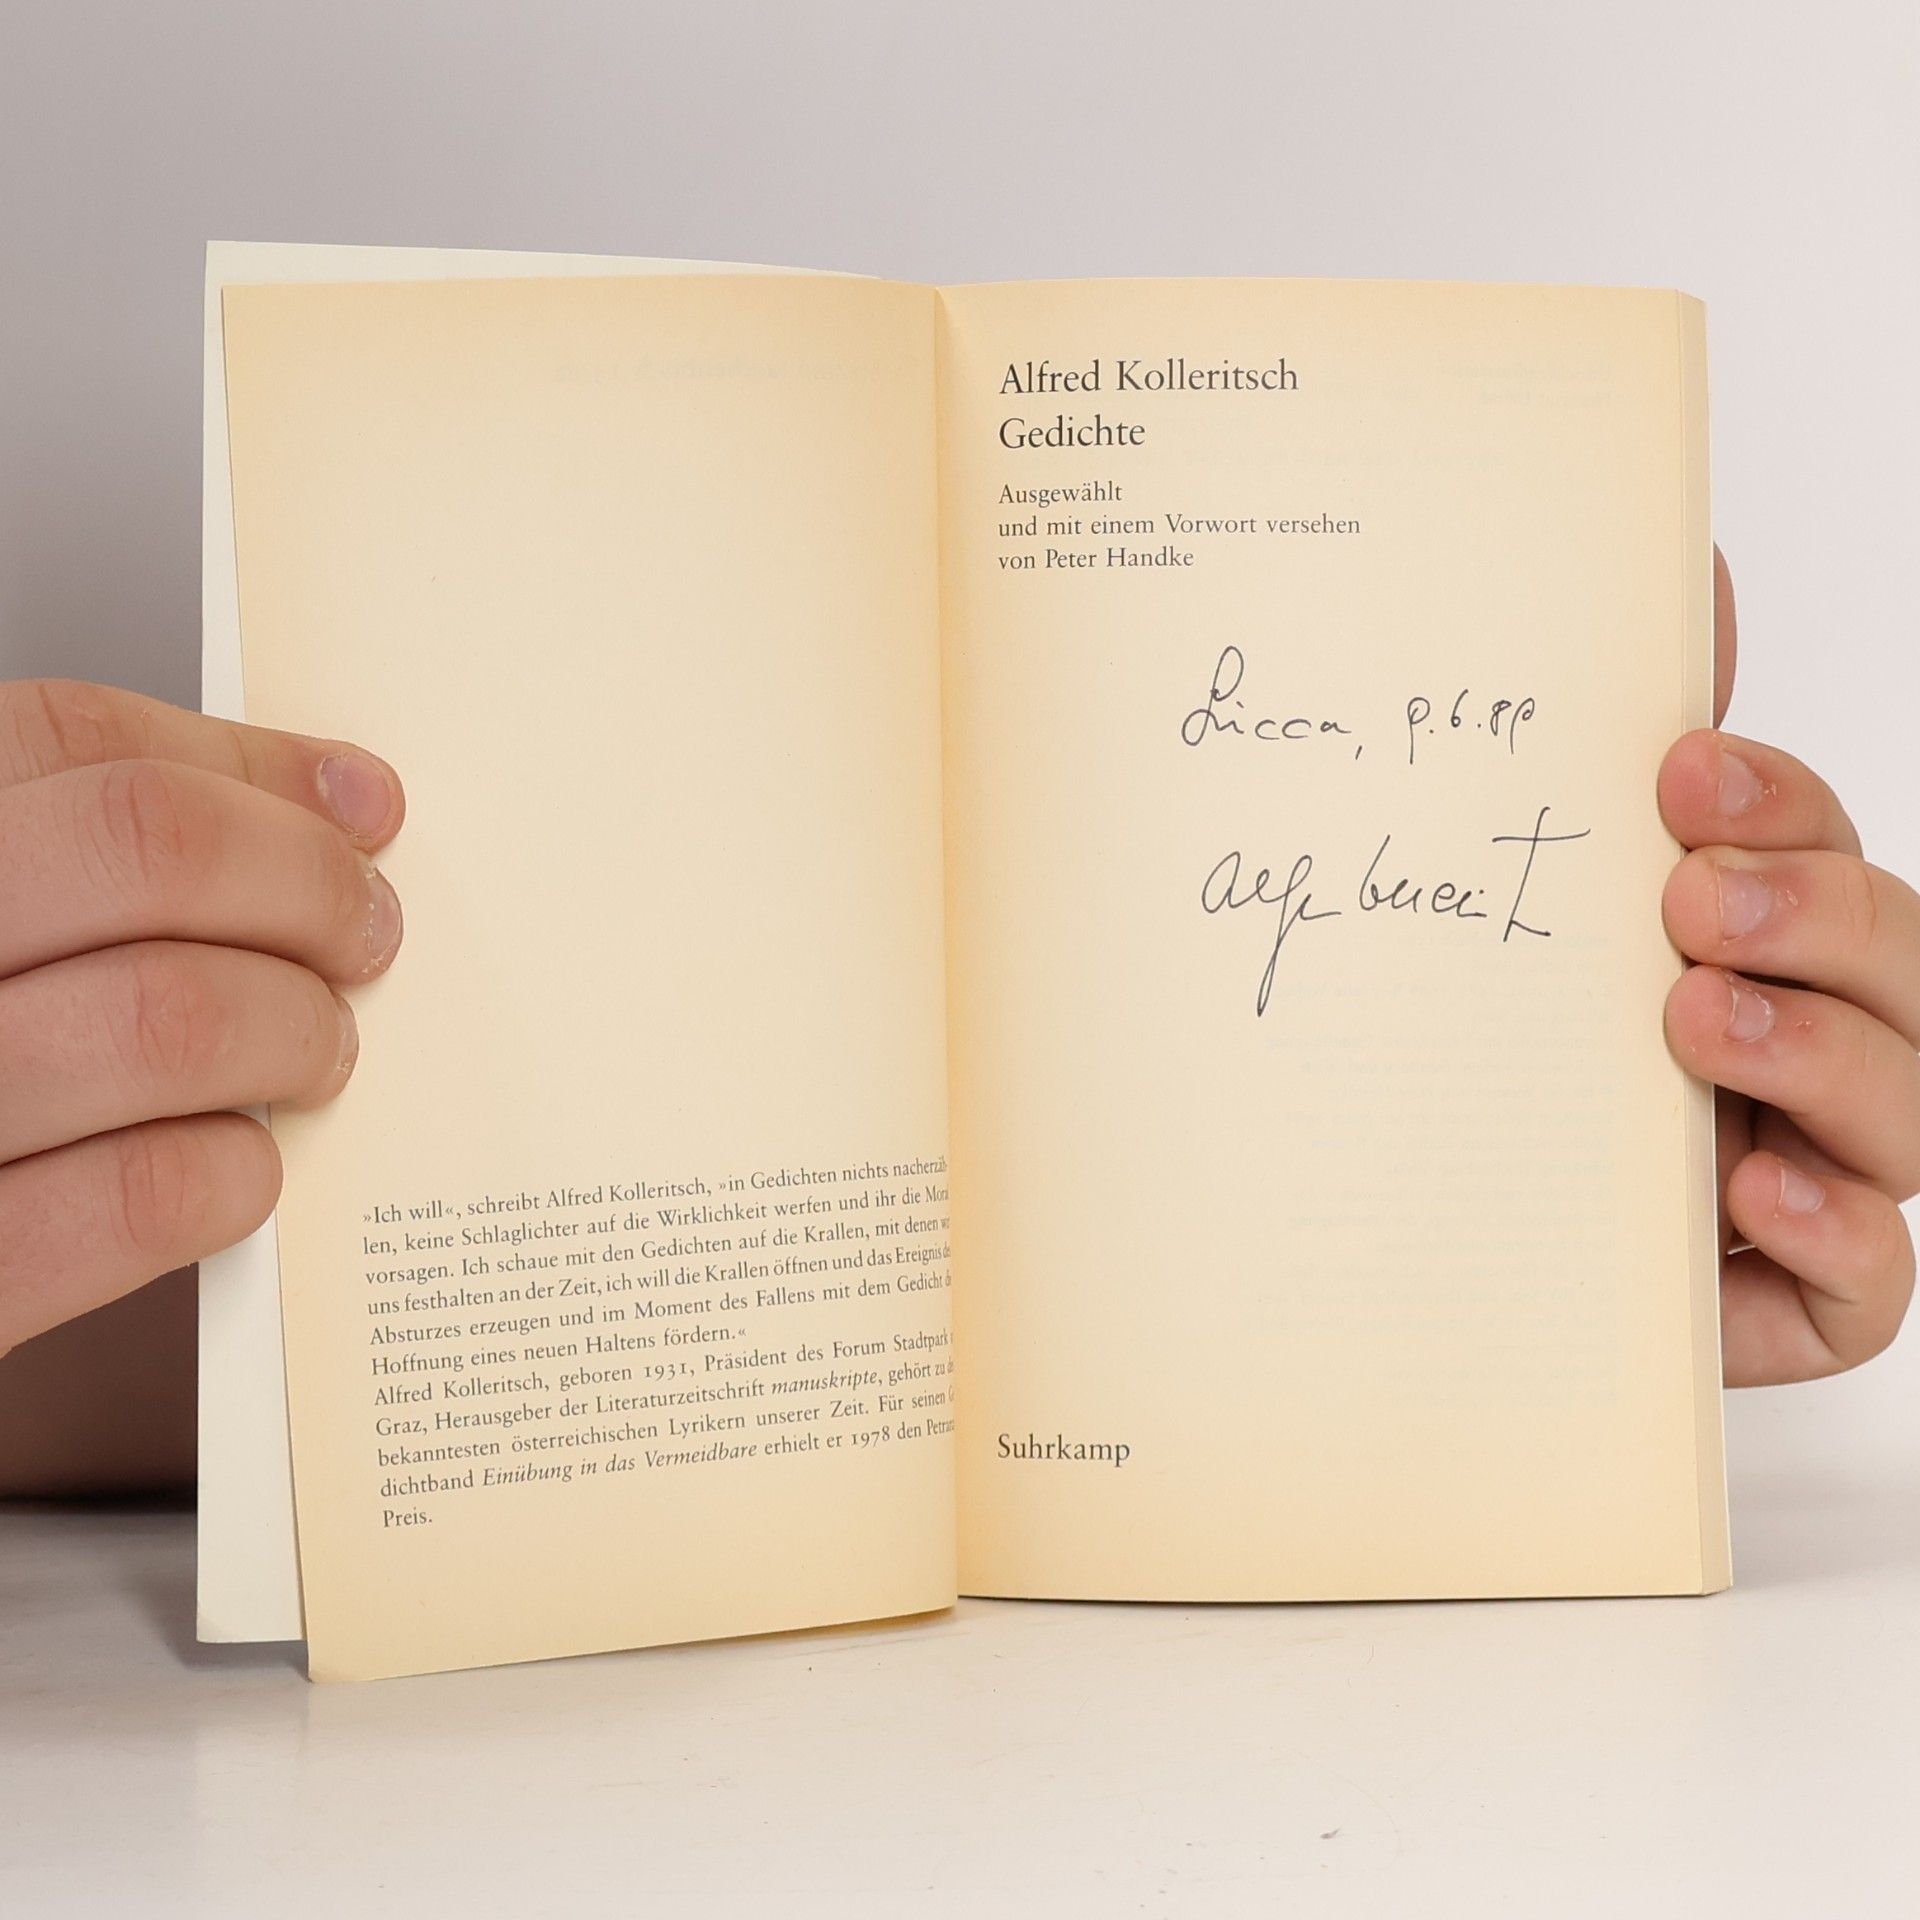 »Ich will«, schreibt Alfred Kolleritsch, »in Gedichten nichts nacherzäh-
len, keine Schlaglichter auf die Wirklichkeit werfen und ihr die Moral
vorsagen. Ich schaue mit den Gedichten auf die Krallen, mit denen
uns festhalten an der Zeit, ich will die Krallen öffnen und das Ereignis
Absturzes erzeugen und im Moment des Fallens mit dem Gedicht
Hoffnung eines neuen Haltens fördern.«
Alfred Kolleritsch, geboren 1931, Präsident des Forum Stadtpark
Graz, Herausgeber der Literaturzeitschrift manuskripte, gehört zu
bekanntesten österreichischen Lyrikern unserer Zeit. Für seinen
dichtband Einübung in das Vermeidbare erhielt er 1978 den
Preis.
Alfred Kolleritsch
Gedichte
Ausgewählt
und mit einem Vorwort versehen
von Peter Handke
Lucca, 9.6.89
Suhrkamp